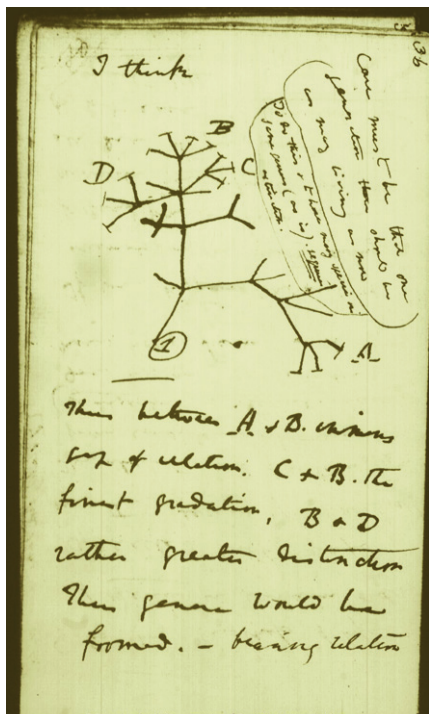 36
I think
Case must be that one
generation then should be
as many living as now
To do this & to have many species in
same genus (as is). requires
extinction.
B
C
D
1
A
Thus between A & B. immens
gap of relation. C & B. the
finest gradation, B & D
rather greater distinction
Thus genera would be
formed. — bearing relation